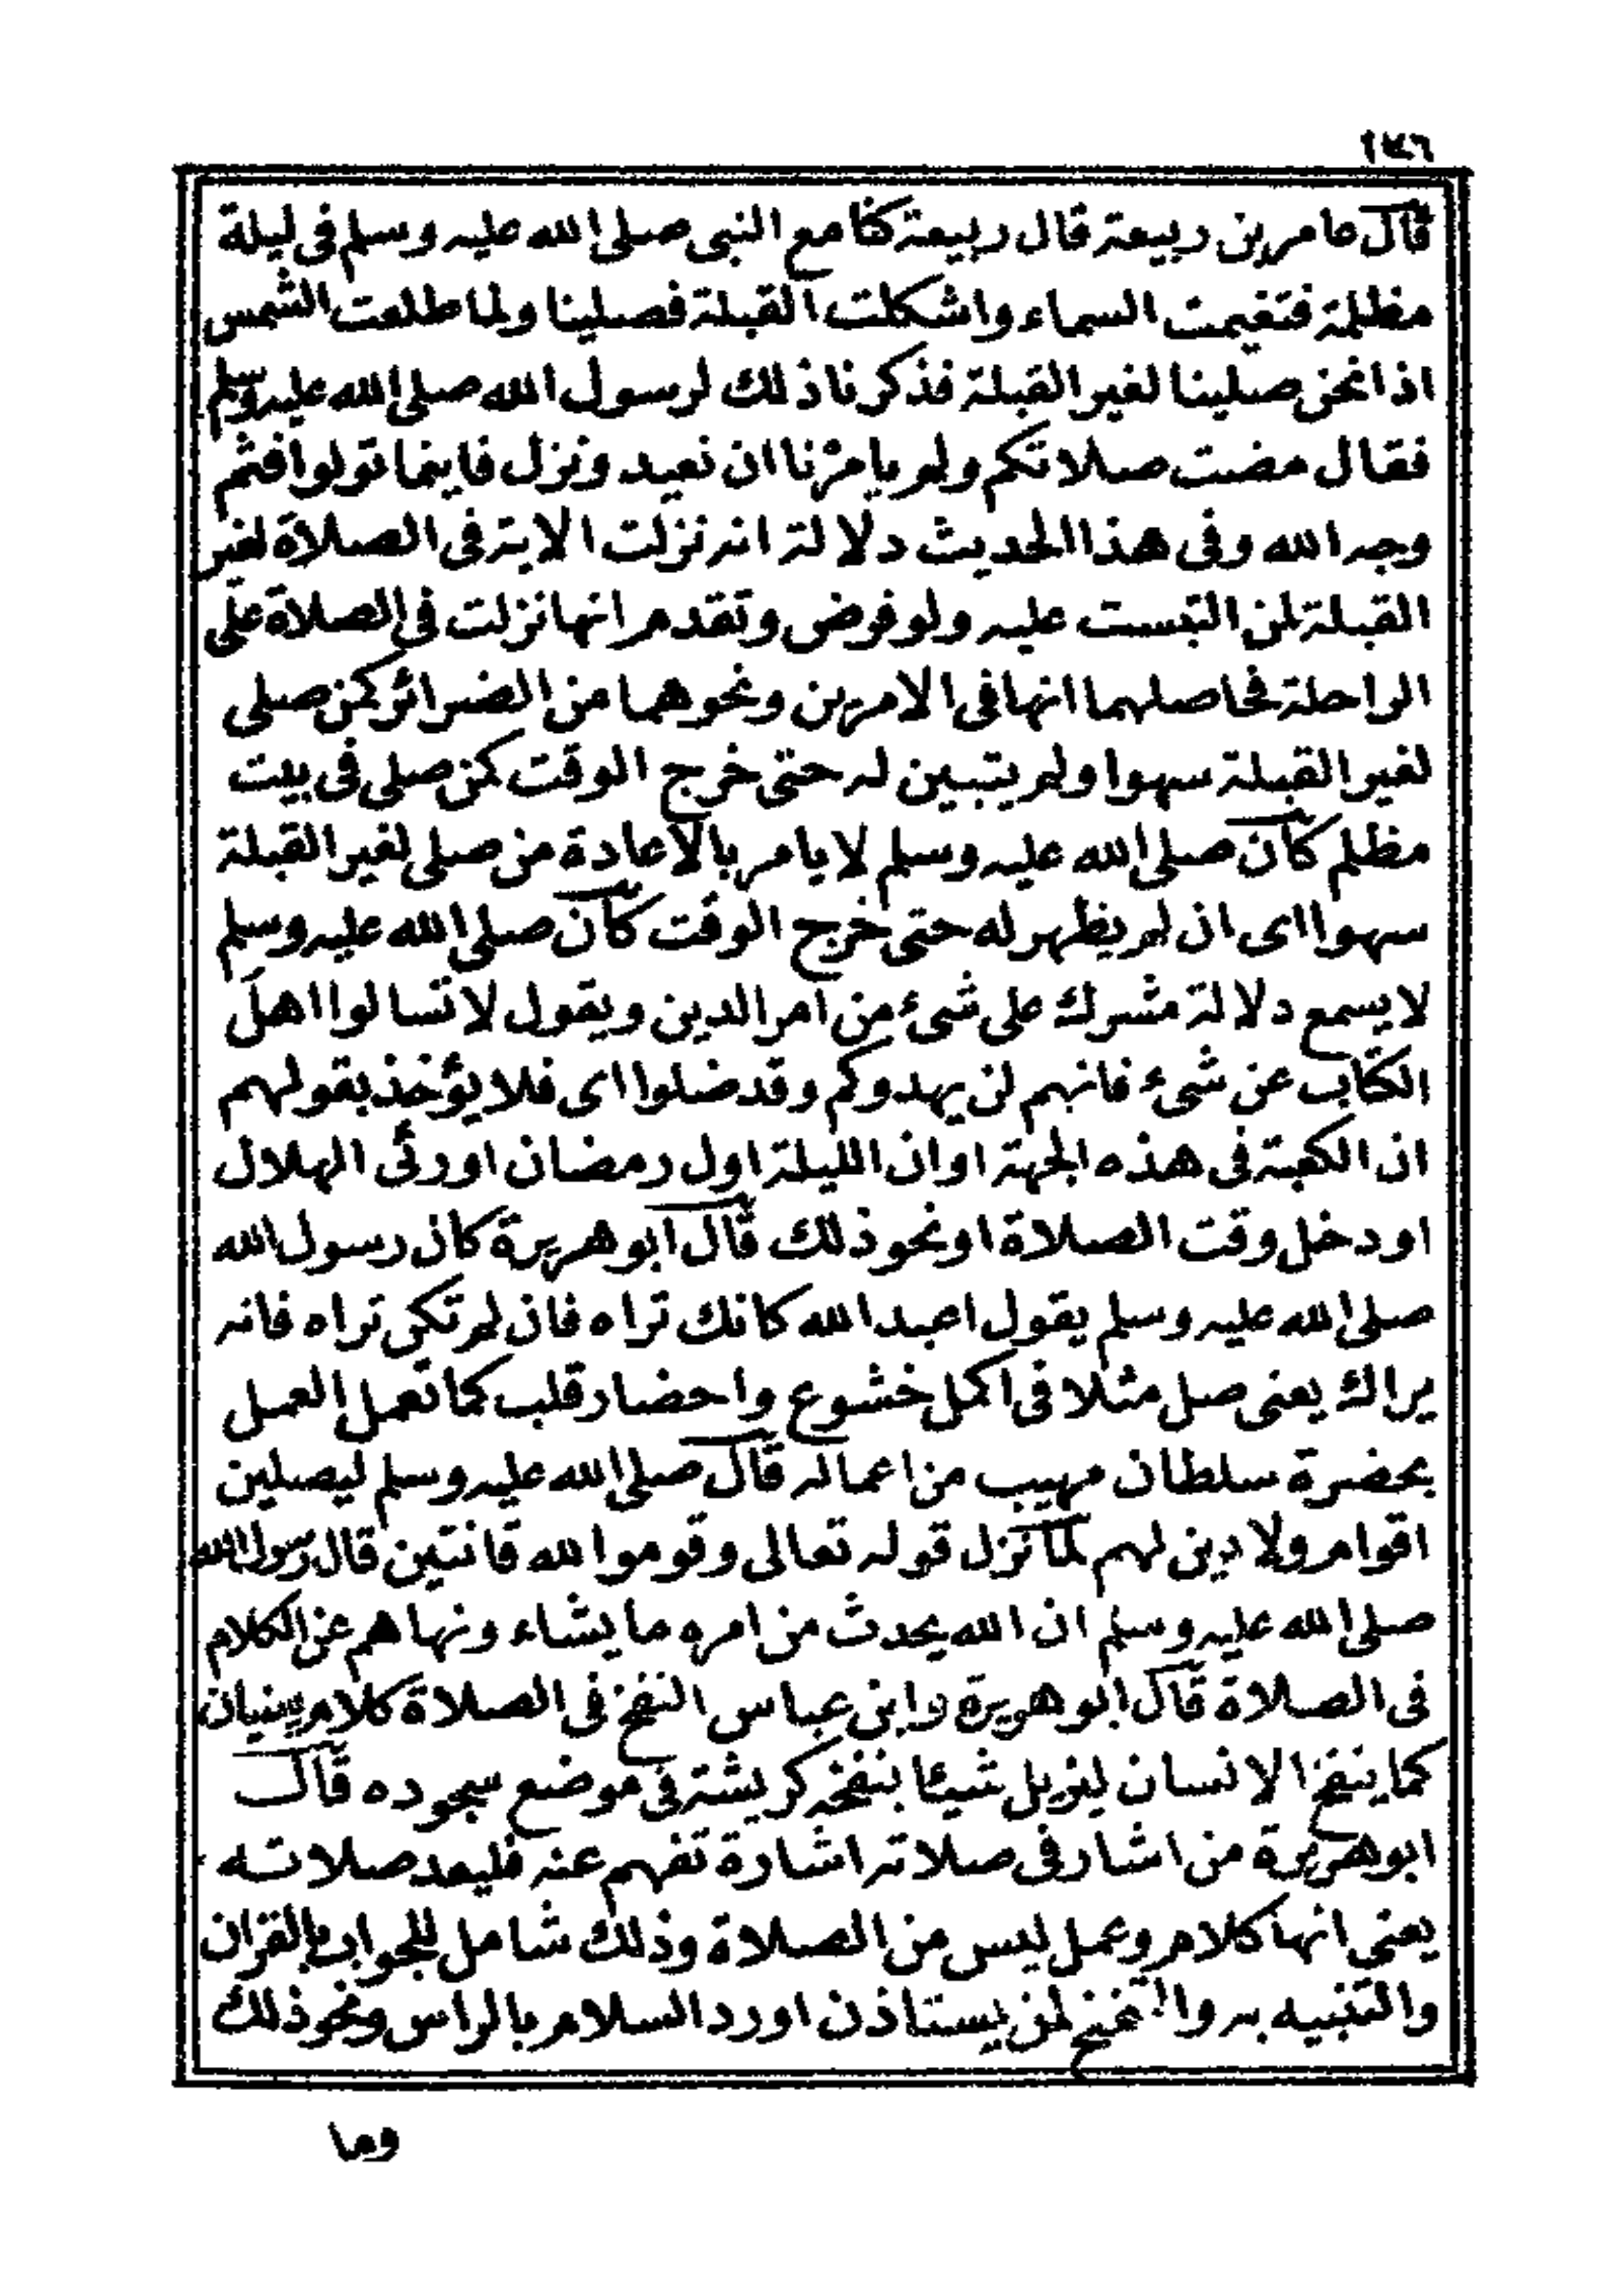 ١٤٦
قال عامر بن ربيعة قال ربيعة كنا مع النبى صلى الله عليه وسلم فى ليلة
مظلمة فتغيمت السماء واشكلت القبلة فصلينا ولما طلعت الشمس
اذا نحن صلينا لغير القبلة فذكرنا ذلك لرسول الله صلى الله عليه وسلم
فقال مضت صلاتكم ولم يامرنا ان نعيد ونزل فاينما تولوا فثم
وجه الله وفى هذا الحديث دلالة انه نزلت الاية فى الصلاة لغير
القبلة لمن التبست عليه ولو فرض وتقدم انها نزلت فى الصلاة على
الراحلة فحاصلهما انها فى الامرين ونحوهما من الضرائر كمن صلى
لغير القبلة سهوا ولم يتبين له حتى خرج الوقت كمن صلى فى بيت
مظلم كان صلى الله عليه وسلم لا يامر بالاعادة من صلى لغير القبلة
سهوا اى ان لم يظهر له حتى خرج الوقت كان صلى الله عليه وسلم
لا يسمع دلالة مشرك على شىء من امر الدين ويقول لا تسالوا اهل
الكتاب عن شىء فانهم لن يهدوكم وقد ضلوا اى فلا يؤخذ بقولهم
ان الكعبة فى هذه الجهة او ان الليلة اول رمضان او رئى الهلال
او دخل وقت الصلاة او نحو ذلك قال ابو هريرة كان رسول الله
صلى الله عليه وسلم يقول اعبد الله كانك تراه فان لم تكن تراه فانه
يراك يعنى صل مثلا فى اكمل خشوع واحضار قلب كما تعمل العمل
بحضرة سلطان مهيب من اعماله قال صلى الله عليه وسلم ليصلين
اقوام ولا دين لهم لما نزل قوله تعالى وقوموا لله قانتين قال رسول الله
صلى الله عليه وسلم ان الله يحدث من امره ما يشاء ونهاهم عن الكلام
فى الصلاة قال ابو هريرة وابن عباس النفخ فى الصلاة كلام يعنيان
كما ينفخ الانسان ليزيل شيئا بنفخه كريشة فى موضع سجوده قال
ابو هريرة من اشار فى صلاته اشارة تفهم عنه فليعد صلاته
يعنى انها كلام وعمل ليس من الصلاة وذلك شامل للجواب بالقران
والتنبيه به والتنحنح لمن يستاذن او رد السلام بالراس ونحو ذلك
وما